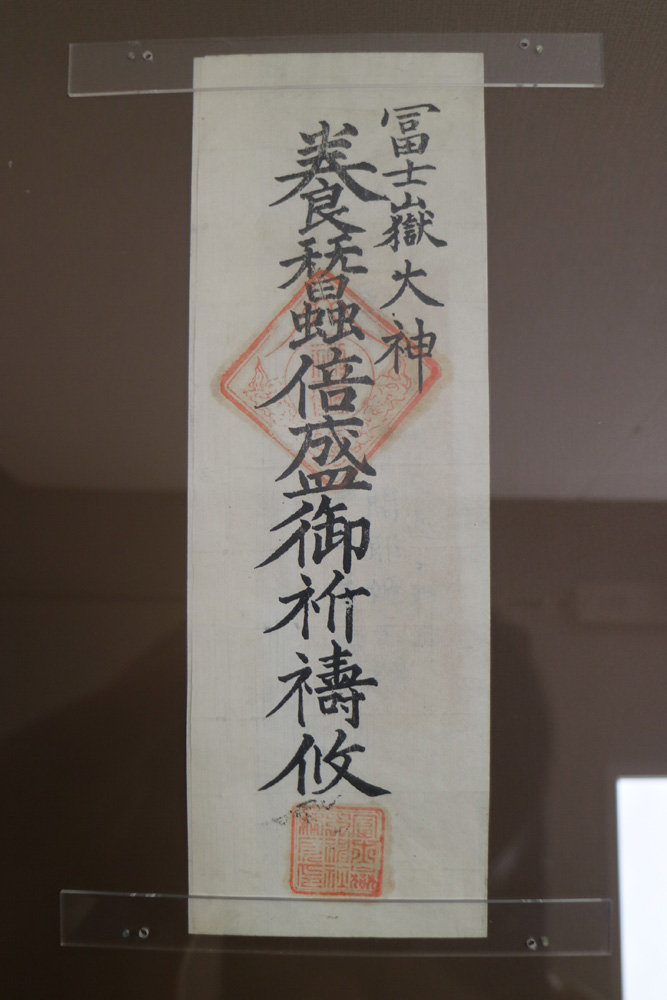 冨士嶽大神
養蠶倍盛御祈禱攸